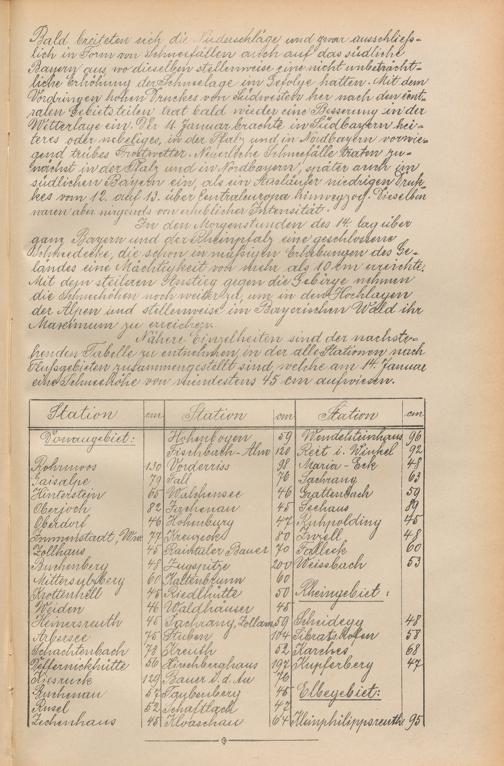 Bald breiteten sich die Niederschläge und zwar ausschließ-
lich in Form von Schneefällen auch auf das südliche
Bayern aus, wo dieselben stellenweise eine nicht unbeträcht-
liche Erhöhung der Schneelage im Gefolge hatten. Mit dem
Vordringen hohen Druckes von Südwesten her nach den cent-
ralen Gebietsteilen trat bald wieder eine Besserung in der
Wetterlage ein. Der 11. Januar brachte in Südbayern hei-
teres oder nebeliges, in der Pfalz und in Nordbayern vorwie-
gend trübes Frostwetter. Neuerliche Schneefälle traten zu-
nächst in der Pfalz und in Nordbayern, später auch im
südlichen Bayern ein, als ein Ausläufer niedrigen Druk-
kes vom 12. auf 13. über Centraleuropa hinwegzog. Dieselben
waren aber nirgends von erheblicher Intensität.
In den Morgenstunden des 14. lag über
ganz Bayern und der Rheinpfalz eine geschlossene
Schneedecke, die schon in mäßigen Erhebungen des Ge-
ländes eine Mächtigkeit von mehr als 10 cm erreichte.
Mit dem steileren Anstieg gegen die Gebirge nehmen
die Schneehöhen noch weiter zu, um in den Hochlagen
der Alpen und stellenweise im Bayerischen Wald ihr
Maximum zu erreichen.
Nähere Einzelheiten sind der nachste-
henden Tabelle zu entnehmen, in der alle Stationen nach
Flußgebieten zusammengestellt sind, welche am 14. Januar
eine Schneehöhe von mindestens 45 cm aufwiesen.
Station cm Station cm Station cm
Donaugebiet: Hohenbogen 59 Wendelsteinhaus 96
Fischbach-Alm 120 Reit i. Winkel 92
Rohrmoos 130 Vorderriss 98 Maria-Eck 48
Gaisalpe 79 Fall 76 Sachrang 63
Hinterstein 65 Walchensee 46 Grattenbach 59
Oberjoch 82 Jachenau 45 Seehaus 89
Oberdorf 46 Hohenburg 47 Ruhpolding 45
Immenstadt, 77 Kreuzeck 80 Inzell 48
Zollhaus 45 Raintaler Bauer 70 Falleck 60
Buchenberg 48 Zugspitze 200 Weissbach 53
Mittersulzberg 60 Kaltenbrunn 60
Krottenhill 45 Riedlhütte 50 Rheingebiet:
Weiden 46 Waldhäuser 45
Heinersreuth 45 Sachrang, Zollam 59 Scheidegg 48
Arbersee 75 Stuben 104 58
Schachtenbach 78 Kreuth 52 Karches 68
56 Hirschberghaus 197 Kupferberg 47
129 Bauer i. d. Au 76
Buchenau 57 Taubenberg 45 Elbegebiet:
Rusel 52 Schaftlach 47
Zechenhaus 45 64 Kleinphilippsreuth 95
9